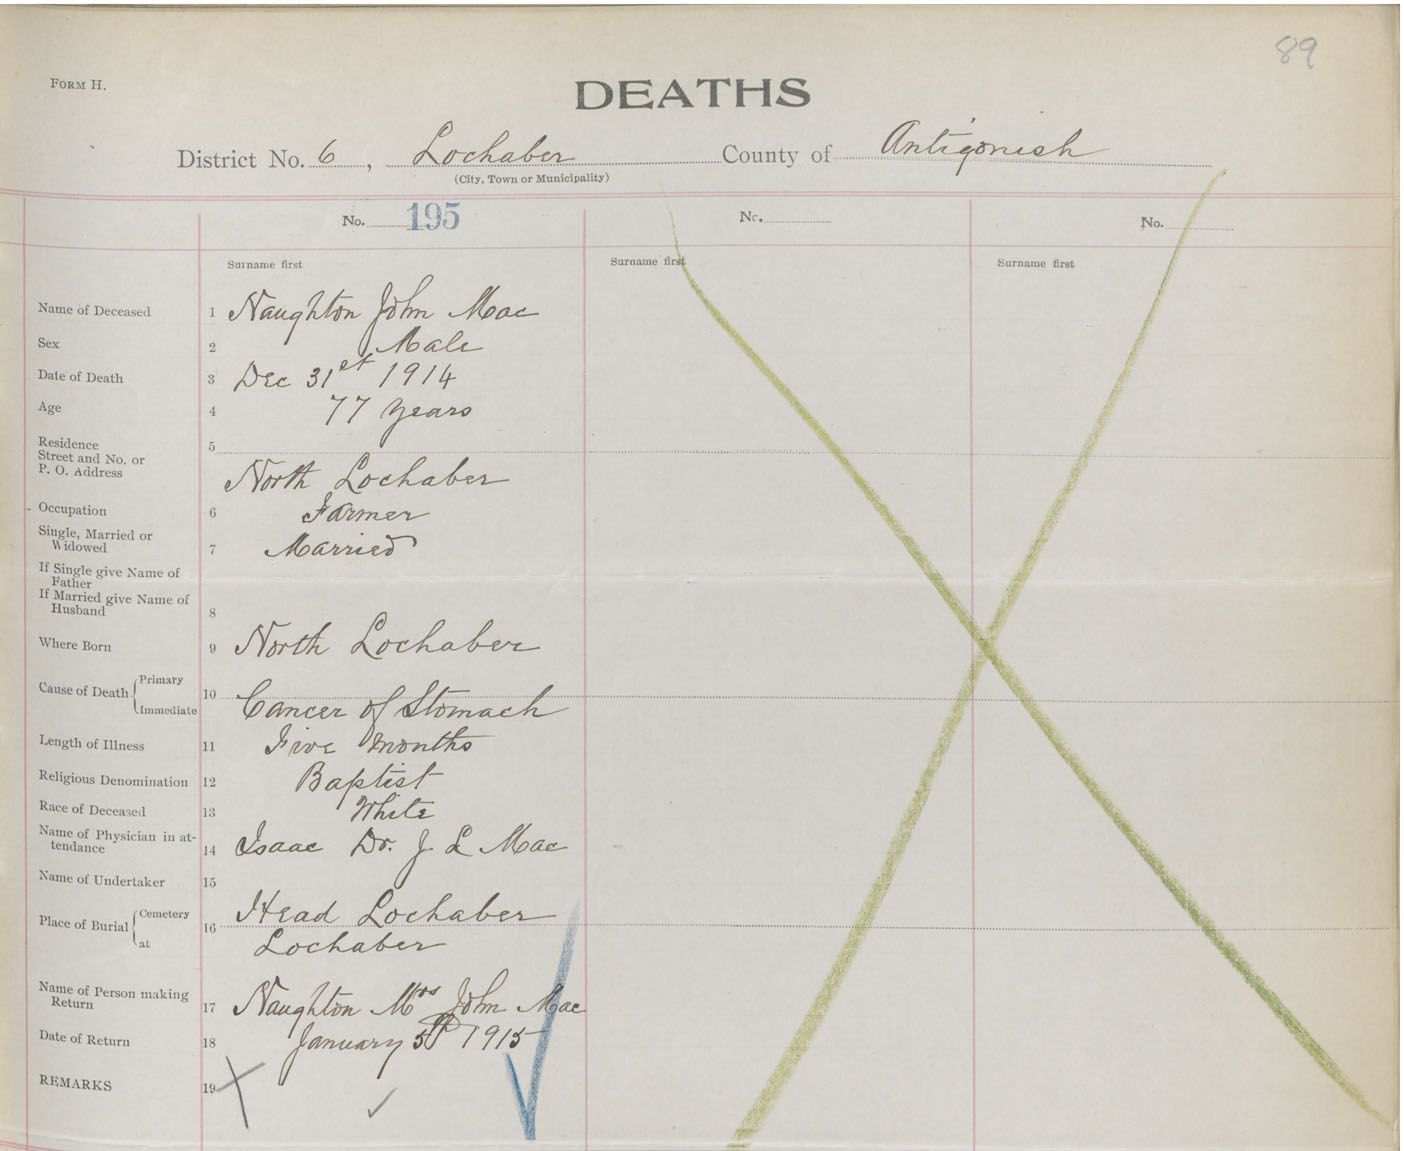 89
FORM H.
DEATHS
District No. 6, Lochaber County of Antigonish
(City, Town or Municipality)
No. 195 No. No.
Surname first Surname first Surname first
Name of Deceased 1 Naughton John Mac
Sex 2 Male
Date of Death 3 Dec 31st 1914
Age 4 77 years
Residence 5
Street and No. or
P. O. Address North Lochaber
Occupation 6 Farmer
Single, Married or
Widowed 7 Married
If Single give Name of
Father
If Married give Name of
Husband 8
Where Born 9 North Lochaber
Cause of Death { Primary
10 Cancer of Stomach
Immediate
Length of Illness 11 Five months
Religious Denomination 12 Baptist
Race of Deceased 13 White
Name of Physician in at-
tendance 14 Isaac Dr. J L Mac
Name of Undertaker 15
Place of Burial { Cemetery 16 Head Lochaber
at Lochaber
Name of Person making
Return 17 Naughton Mrs John Mac
Date of Return 18 January 5th 1915
REMARKS 19